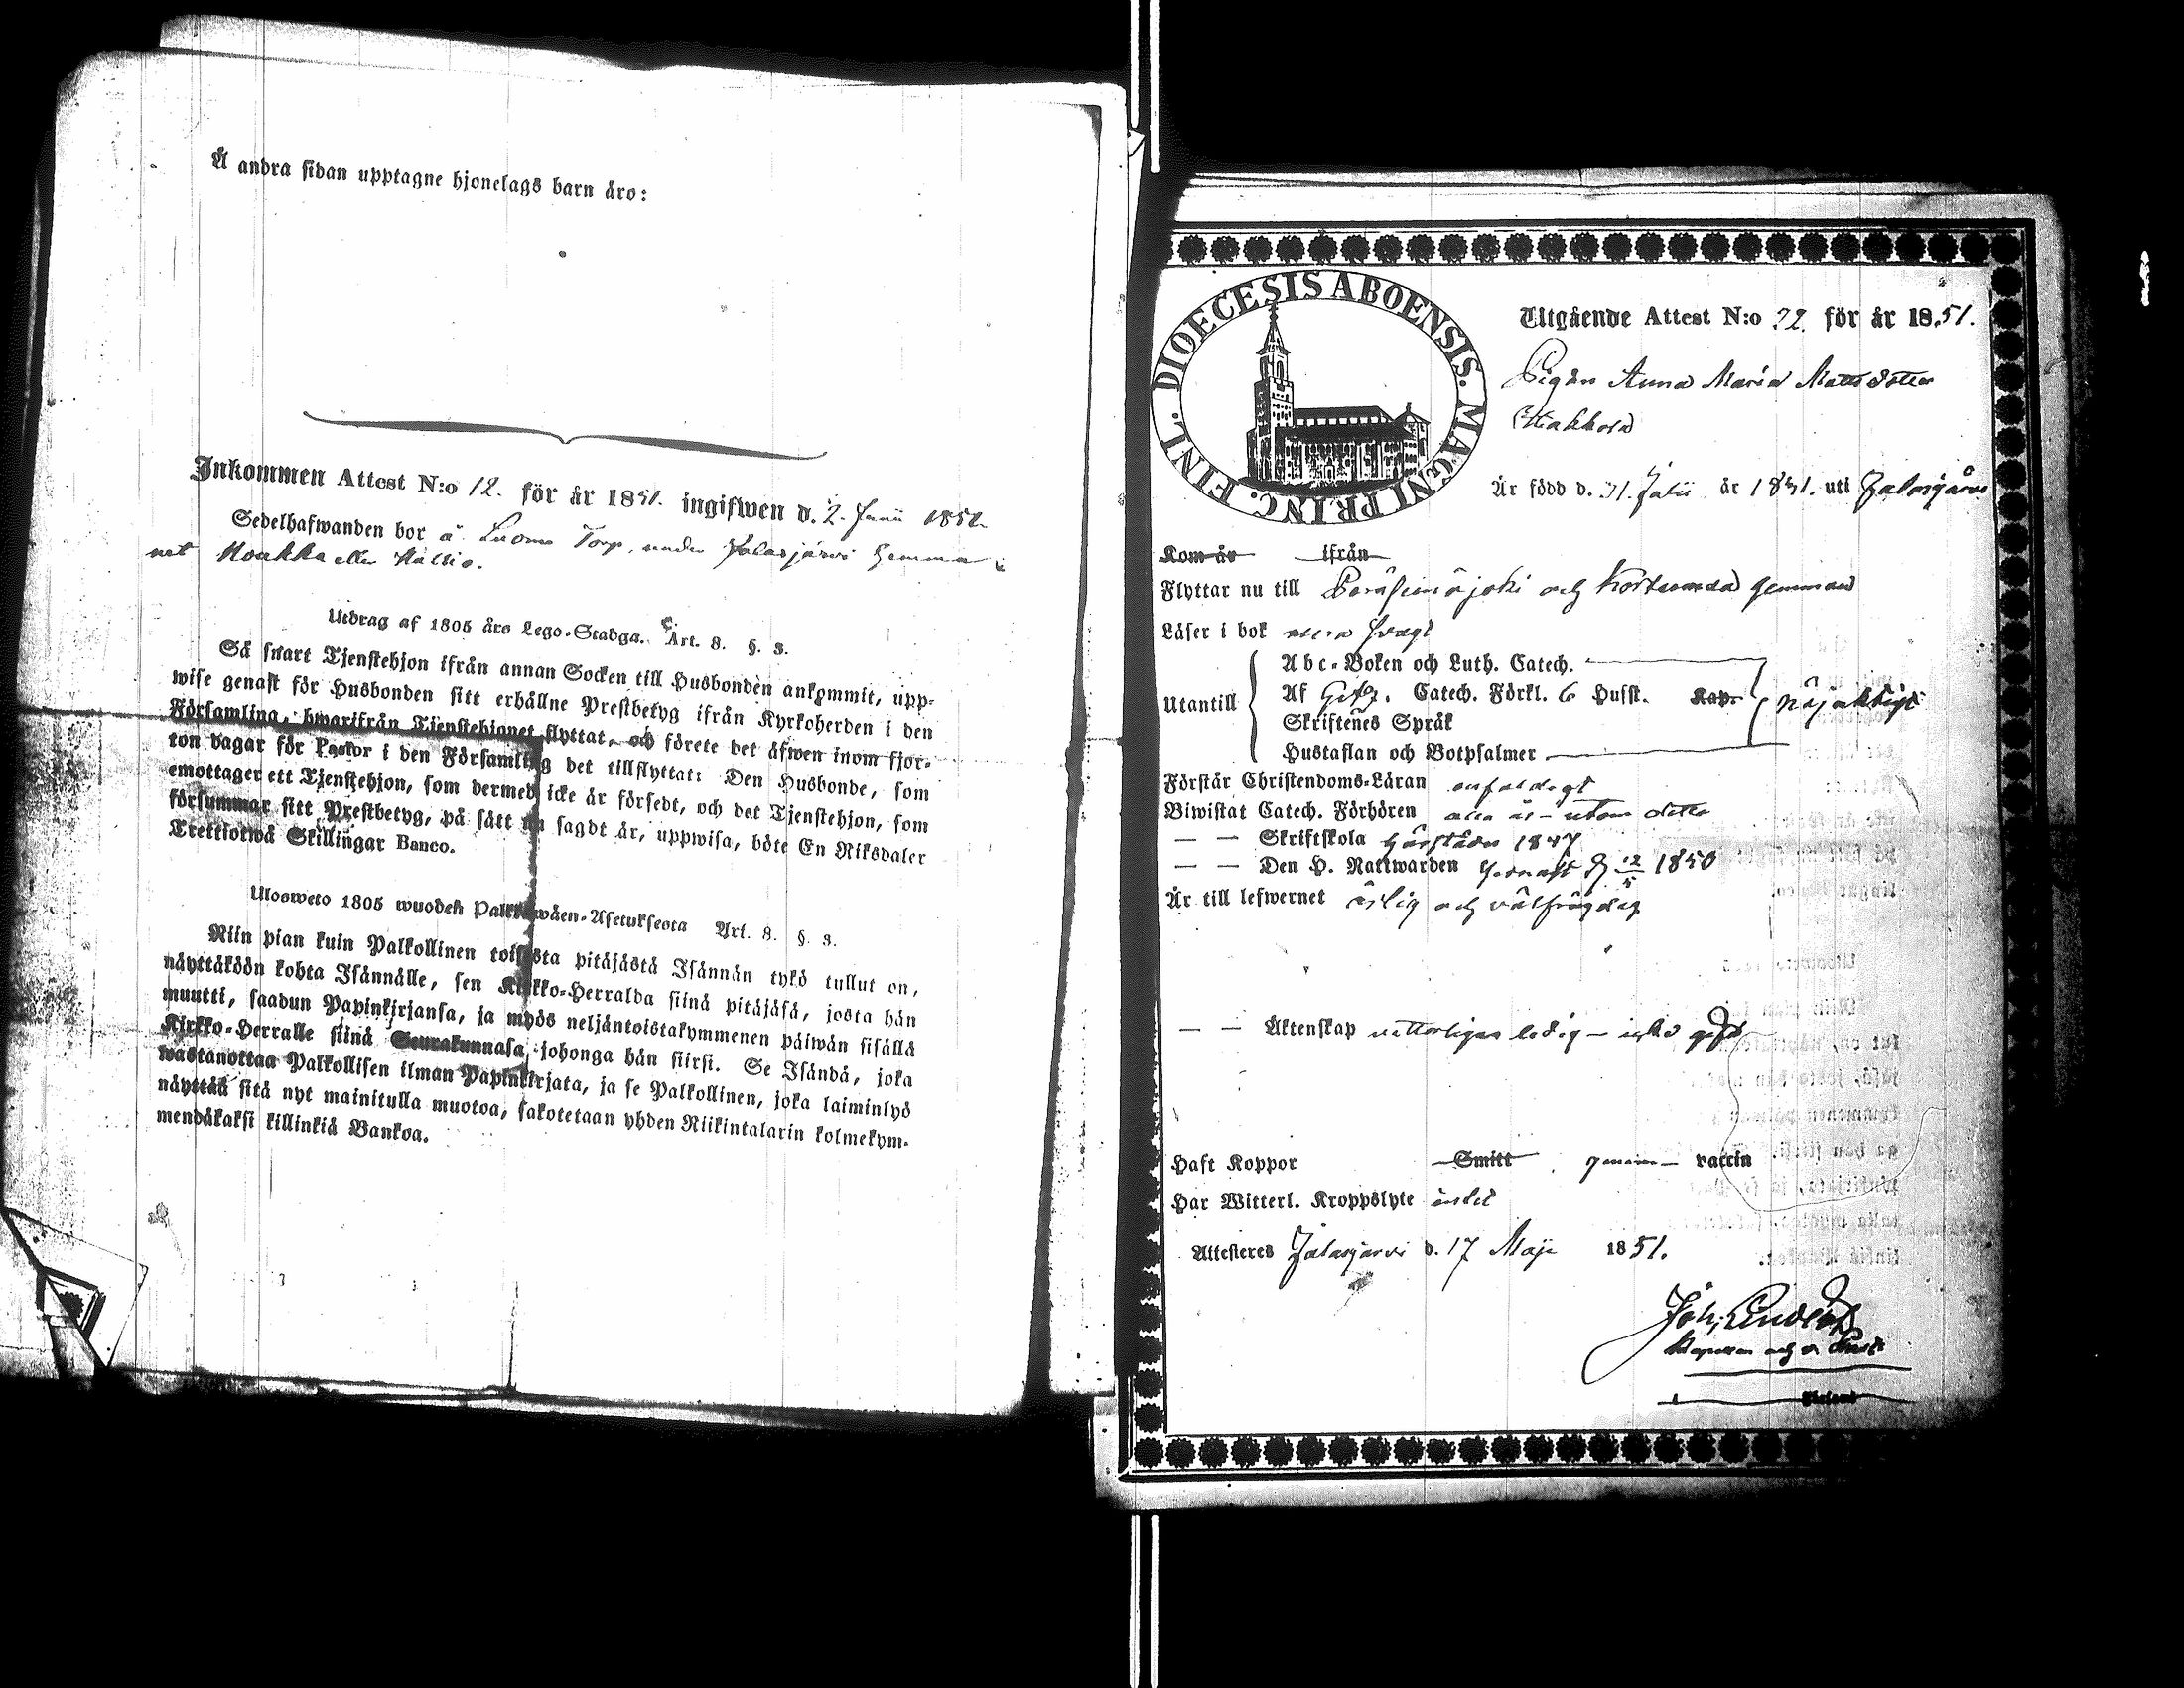 Å andra sidan upptagne hjonelags barn äro:
Inkommen Attest N:o 12. för år 1851. ingifwen d. 2. Junii 1851.
Sedelhafwanden bor å Luoma Torp, under Jalasjärvi hemma
net Koukka eller Kallio.
Utdrag af 1805 års Lego-Stadga. Art. 8. §. 3.
Så snart Tjenstehjon ifrån annan Socken till Husbonden ankommit, upp-
wise genast för Husbonden sitt erhållne Prestbetyg ifrån Kyrkoherden i den
Församling, hwarifrån Tjenstehjonet flyttat, och förete det äfwen inom fjor-
ton dagar för Pastor i den Församling det tillflyttat: Den Husbonde, som
emottager ett Tjenstehjon, som dermed icke är försedt, och det Tjenstehjon, som
försummar sitt Prestbetyg, på sätt nu sagdt är, uppwisa, böte En Riksdaler
Trettiotwå Skillingar Banco.
Ulosweto 1805 wuoden Palkkawäen-Asetuksesta Art. 8. §. 3.
Niin pian kuin Palkollinen toisesta pitäjästä Isännän tykö tullut on,
näyttäköön kohta Isännälle, sen Kirkko-Herralda siinä pitäjäsä, josta hän
muutti, saadun Papinkirjansa, ja myös neljäntoistakymmenen päiwän sisällä
Kirkko-Herralle siinä Seurakunnasa, johonga hän siirsi. Se Isändä, joka
wastanottaa Palkollisen ilman Papinkirjata, ja se Palkollinen, joka laiminlyö
näyttää sitä nyt mainitulla muotoa, sakotetaan yhden Riikintalarin kolmekym-
mendäkaksi killinkiä Bankoa.
DIOECESIS ABOENSIS. MAGNI PRINC. FINL.
Utgående Attest N:o 22. för år 1851.
Pigan Anna Maria Mattsdotter
Är född d. 31. Julii år 1831. uti Jalasjärvi
Kom år ifrån
Flyttar nu till Peräseinäjoki och hemman
Läser i bok
Abc-Boken och Luth. Catech.
Utantill Af Catech. Förkl. 6 Husst. Kap. nöjaktigt
Skriftenes Språk
Hustaflan och Botpsalmer
Förstår Christendoms-Läran enfaldigt
Biwistat Catech. Förhören alla år utom detta
— — Skriftskola 1847
— — Den H. Nattwarden senast d. 12/5 1850
Är till lefwernet ärlig och välfrägdad
— — Äktenskap vitterligen ledig — icke
Haft Koppor Smitt genom vaccin
Har Witterl. Kroppslyte intet
Attesteras Jalasjärvi d. 17 Maji 1851.
Joh.
Kapellan och v.